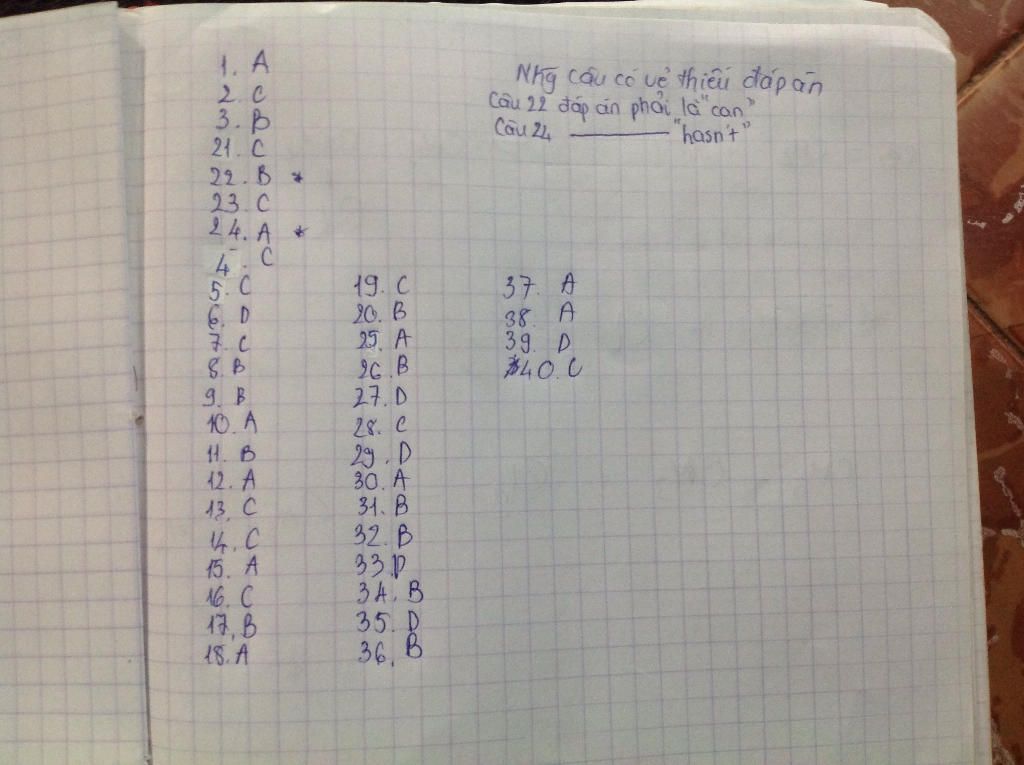 1. A
2. C
3. B
21. C
22. B *
23. C
24. A *
4. C
5. C
6. D
7. C
8. B
9. B
10. A
11. B
12. A
13. C
14. C
15. A
16. C
17. B
18. A
19. C
20. B
25. A
26. B
27. D
28. C
29. D
30. A
31. B
32. B
33. D
34. B
35. D
36. B
37. A
38. A
39. D
40. C
Nhg câu có vẻ thiếu đáp án
Câu 22 đáp án phải là "can"
Câu 24 ——— "hasn't"